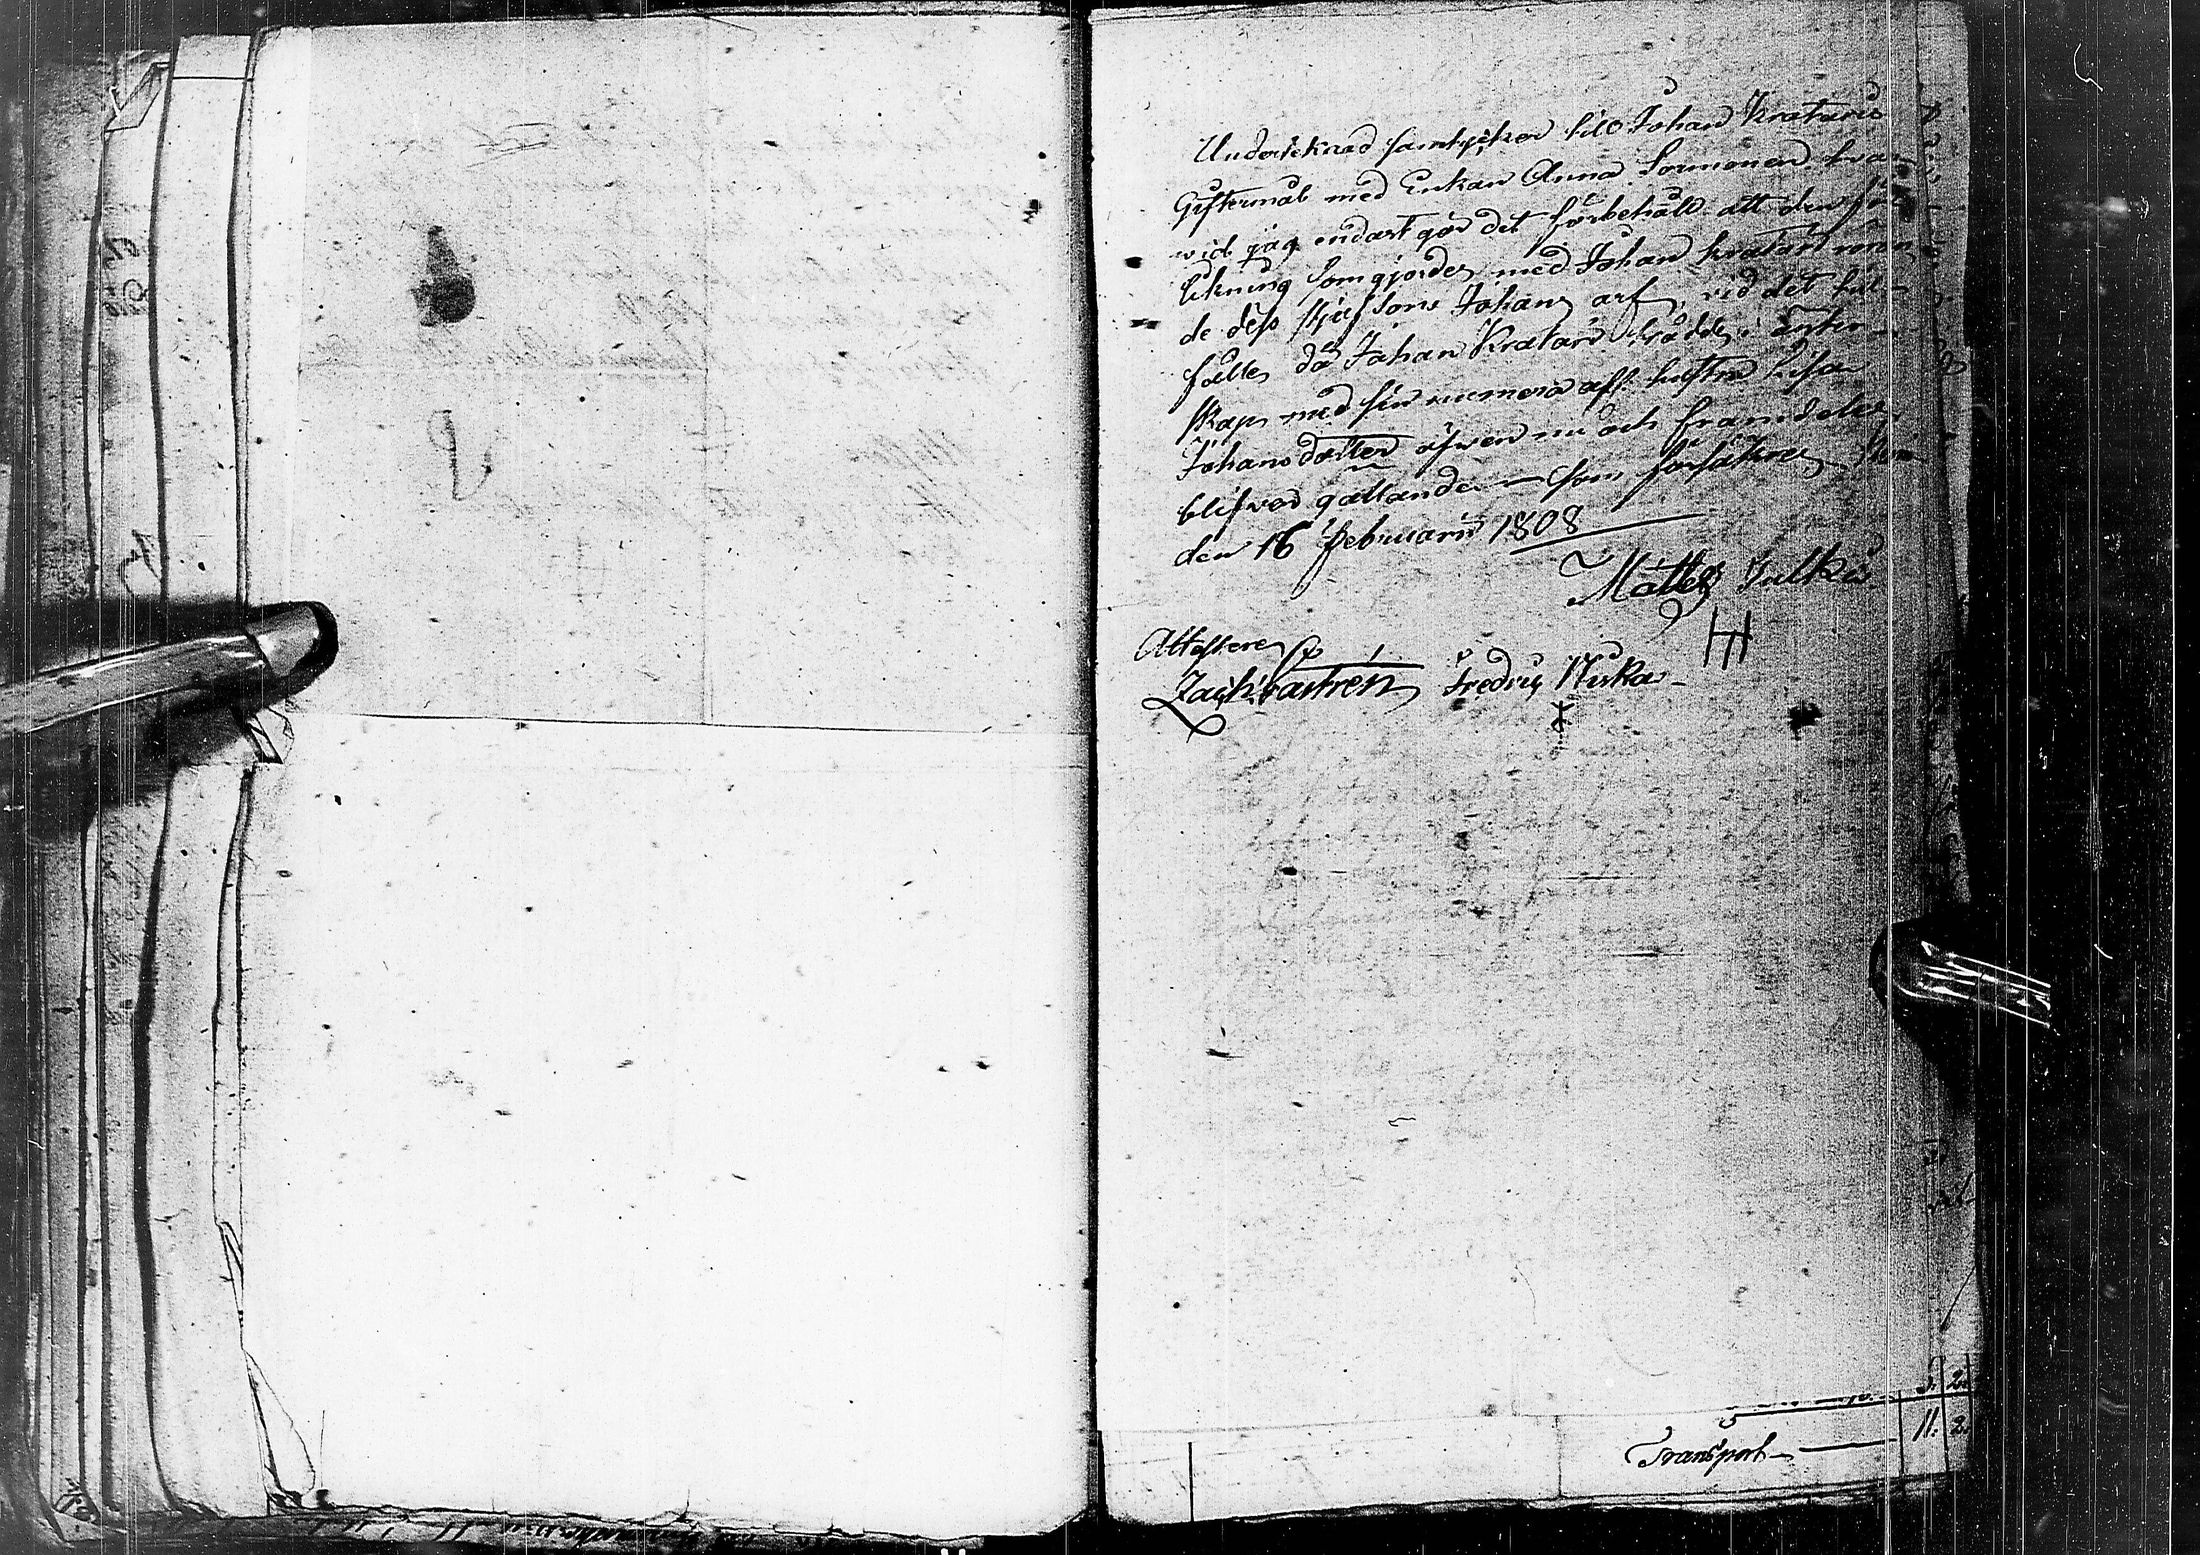 Underteknad samtycker till Johan Krataris
Giftermål med Enkan Anna Sormonen hvar
wid jag endast gör det förbehåll att den för
likning som gjordes med Johan Kratari röran
de dess Stjufsons Johans arf, vid det til-
fälle, då Johan Kratari trädde i ägten-
skap med sin numera afl. hustru Lisa
Johansdotter äfven nu och framdeles
blifver gällande som försäkras
den 16 Februarii 1808
Mattes Julku
Attestera
Zach: Castrén Fredric Niska
5. 2.
Transport 11. 2.